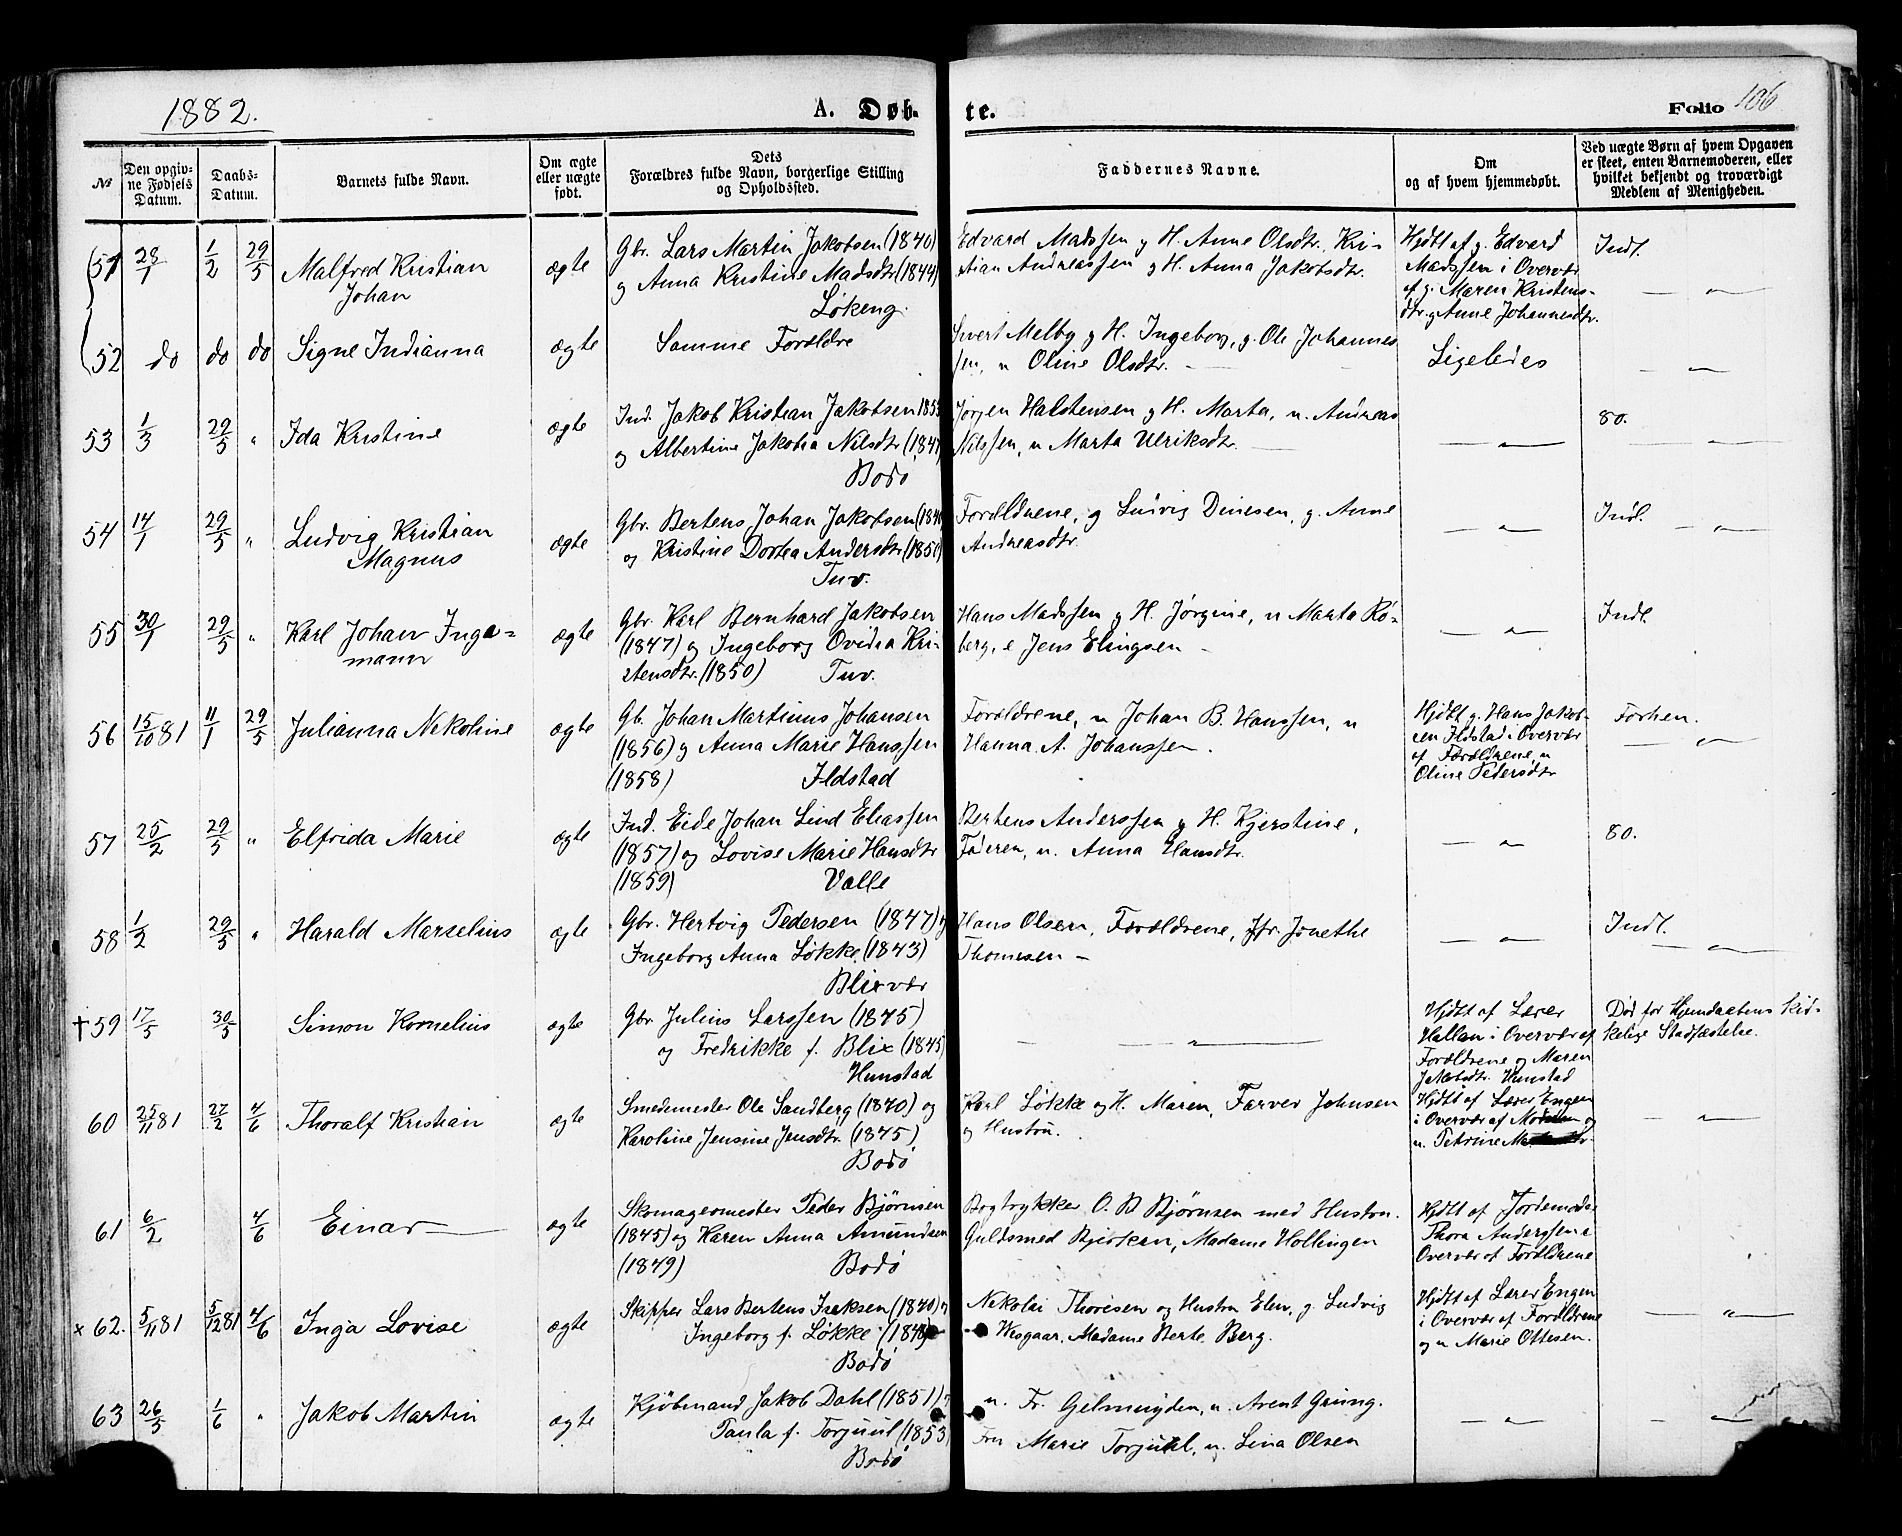 1882.
A. Døb-
te.
Folio 106
№
Den opgiv-
ne Fødsels
Datum.
Daabs-
Datum.
Barnets fulde Navn.
Om ægte
eller uægte
født.
Dets
Forældres fulde Navn, borgerlige Stilling
og Opholdssted.
Faddernes Navne.
Om
og af hvem hjemmedøbt.
Ved uægte Børn af hvem Opgaven
er skeet, enten Barnemoderen, eller
hvilket bekjendt og troværdigt
Medlem af Menigheden.
51 28/1 1/2 29/5 Malfred Kristian
Johan
ægte
Gbr. Lars Martin Jakobsen (1840)
og Anna Kristine Madsdtr (1844)
Løkeng.
Edvard Madssen g H. Anne Olsdtr. Kri-
stian Andreassen g H. Anna Jakobsdtr.
Hjdt af g. Edvard
Madssen i Overvær
af g. Maren Kristens-
dtr. g Anne Johannesdtr.
Indl.
52 do do do Signe Indianna
ægte
Samme Forældre
Sivert Melby g H. Ingeborg, g. Ole Johannes
sen, u Oline Olsdtr.
Ligeledes
53 1/3 29/5 " Ida Kristine
ægte
Ind. Jakob Kristian Jakobsen 1853
og Albertine Jakobia Nilsdtr (1847)
Bodø
Jørgen Halstensen g H. Marta, u. Andreas
Nilssen, u Marta Ulriksdtr.
80.
54 14/1 29/5 " Ludvig Kristian
Magnus
ægte
Gbr. Bertens Johan Jakobsen
og Kristine Dortea Andersdtr (1850)
Tuv.
Forældrene, g Ludvig Dinesen, g. Anne
Andreasdtr.
Indl.
55 30/1 29/5 " Karl Johan Inge-
mann
ægte
Gbr. Karl Bernhard Jakobsen
(1847) og Ingeborg Ovidia Kri-
stensdtr. (1850) Tuv.
Hans Madssen g H. Jørgine, u Marta Rø-
berg, e Jens Elingsen
Indl.
56 15/10 81 11/1 29/5 Julianna Nekoline
ægte
Gb. Johan Martinus Johansen
(1856) g Anna Marie Hanssen
(1858) Ildstad
Forældrene, u Johan B. Hanssen, u
Hanna A. Johanssen.
Hjdt g. Hans Jakob-
sen Ildstad i Overvær
af Forældrene, u
Oline Pedersdtr
Forhen.
57 25/2 29/5 " Elfrida Marie
ægte
Ind. Eide Johan Lind Eliassen
(1857) og Lovise Marie Hansdtr
(1859) Valle
Bertens Anderssen g H. Kjerstine,
Faderen, u. Anna Hansdtr.
80.
58 1/2 29/5 " Harald Marselius
ægte
Gbr. Hertvig Pedersen (1847) og
Ingeborg Anna Løkke (1843)
Blixvær
Hans Olsen, Forældrene, Jfr. Jonethe
Thomesen
Indl.
† 59 17/5 30/5 Simon Kornelius
ægte
Gbr. Julius Larssen (1845)
og Fredrikke f. Blix (1845)
Hunstad
Hjdt af Lærer
Hallan i Overvær af
Forældrene og Maren
Jakobsdtr. Hunstad
Død før Hjemdaabens kir-
kelige Stadfæstelse.
60 25/11 81 27/2 4/6 Thoralf Kristian
ægte
Smedemester Ole Sandberg (1840) og
Karoline Jensine Jensdtr. (1845)
Bodø
Karl Løkke og H. Maren, Farver Johnsen
og Hustru.
Hjdt af Lærer Engen
i Overvær af Moderen og
u. Petrine
61 6/2 4/6 Einar
ægte
Skomagermester Peder Bjørnsen
(1845) og Karen Anna Amundsen
(1849) Bodø
Bogtrykker O. B Bjørnsen med Hustru.
Guldsmed Bjerkan, Madame Hollingen
Hjdt af Jordemoder
Thora Anderssen i
Overvær af Forældrene
x 62. 5/11 81 5/12 81 4/6 Inga Lovise
ægte
Skipper Lars Bertens Isaksen (1840) og
Ingeborg f. Løkke (1848)
Bodø
Nikolai Thoresen og Hustru Elen, g. Ludvig
Wesgaar, Madame Berte Berg.
Hjdt af Lærer Engen
i Overvær af Forældrene
og u Marie Ottesen.
63 26/5 1/6 " Jakob Martin
ægte
Kjøbmand Jakob Dahl (1851) og
Paula f. Torjuul (1853)
Bodø
u. Fr. Gelmuyden, u. Arent Grung.
Fru Marie Torjuul, u. Lina Olsen